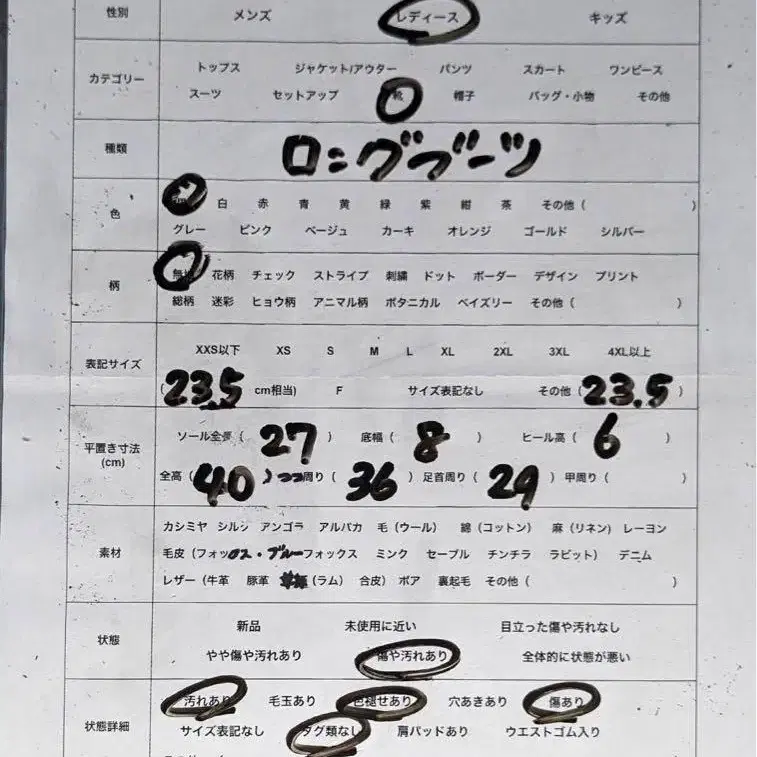 性別 メンズ レディース キッズ
カテゴリー トップス ジャケット/アウター パンツ スカート ワンピース
スーツ セットアップ 靴 帽子 バッグ・小物 その他
種類 ロングブーツ
色 白 赤 青 黄 緑 紫 紺 茶 その他（ ）
グレー ピンク ベージュ カーキ オレンジ ゴールド シルバー
柄 無地 花柄 チェック ストライプ 刺繍 ドット ボーダー デザイン プリント
総柄 迷彩 ヒョウ柄 アニマル柄 ボタニカル ペイズリー その他（ ）
表記サイズ XXS以下 XS S M L XL 2XL 3XL 4XL以上
（23.5 cm相当) F サイズ表記なし その他（23.5）
平置き寸法 (cm) ソール全長（27） 底幅（8） ヒール高（6）
全高（40）つつ周り（36）足首周り（29）甲周り（ ）
素材 カシミヤ シルク アンゴラ アルパカ 毛（ウール） 綿（コットン） 麻（リネン） レーヨン
毛皮（フォックス・ブルーフォックス ミンク セーブル チンチラ ラビット） デニム
レザー（牛革 豚革 （ラム） 合皮） ボア 裏起毛 その他（ ）
状態 新品 未使用に近い 目立った傷や汚れなし
やや傷や汚れあり 傷や汚れあり 全体的に状態が悪い
状態詳細 汚れあり 毛玉あり 色褪せあり 穴あきあり 傷あり
サイズ表記なし タグ類なし 肩パッドあり ウエストゴム入り